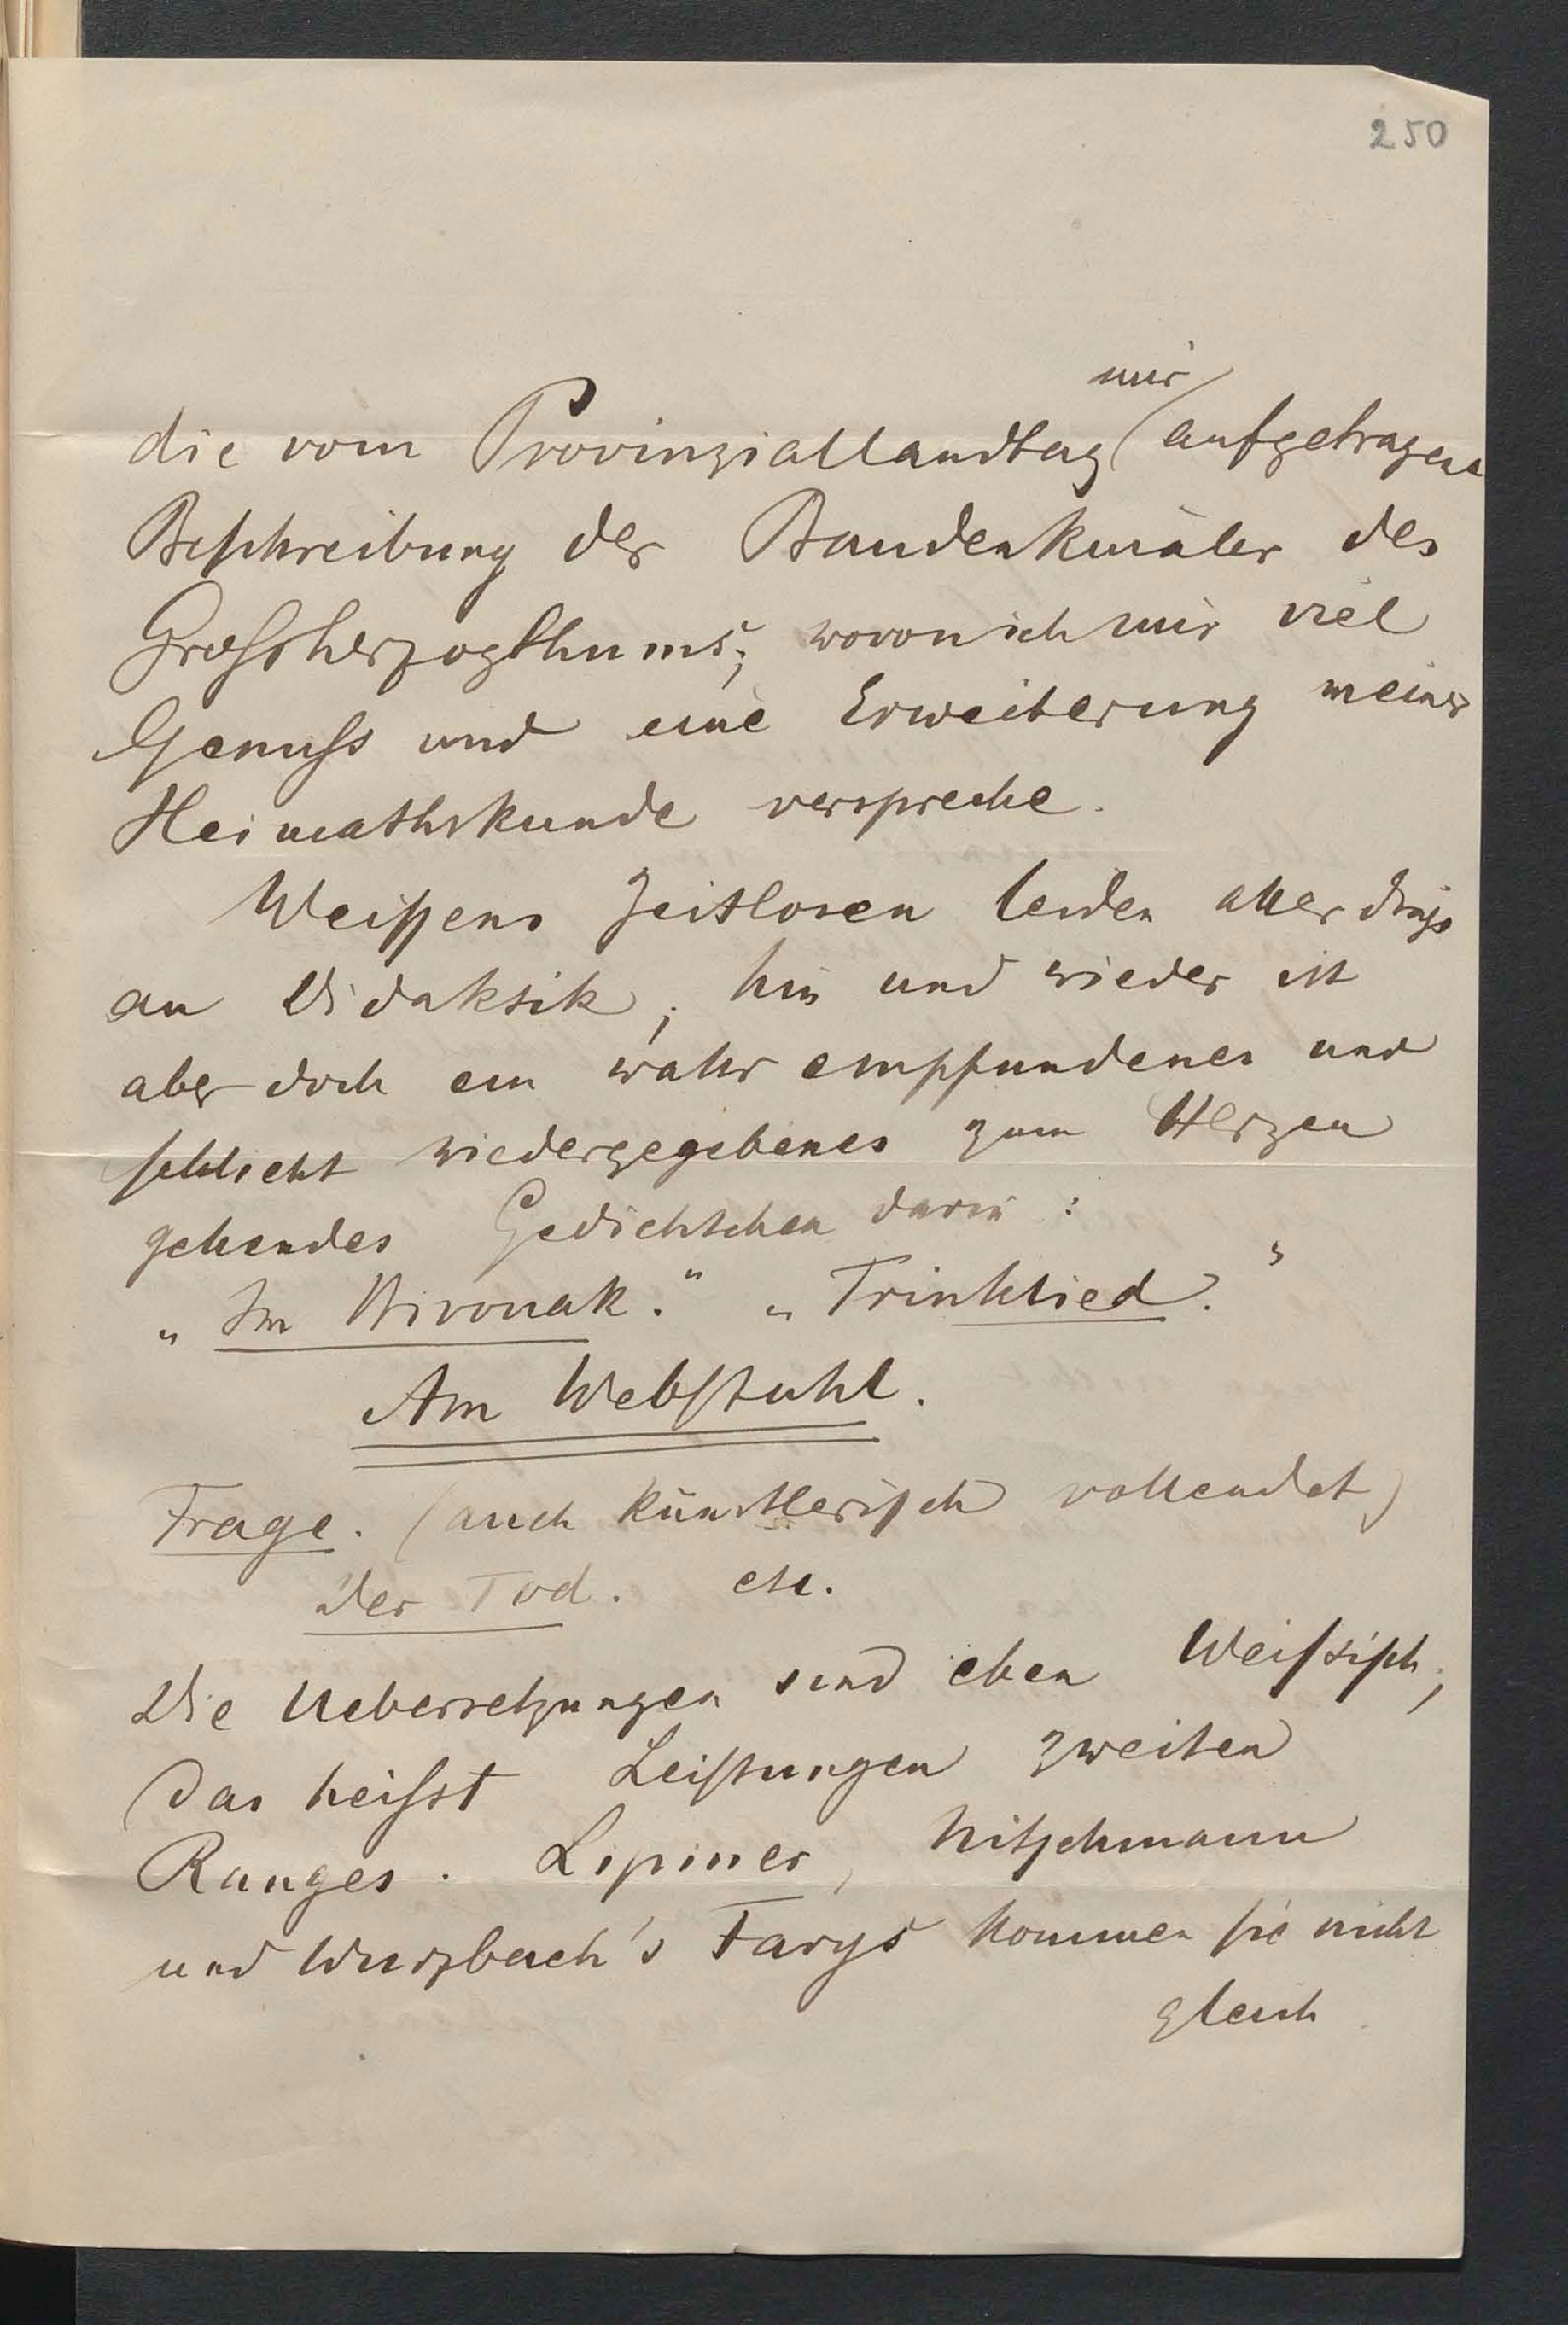 250
mir
die vom Provinziallandtag aufgetragene
Beschreibung der Baudenkmäler des
Grossherzogthums; wovon ich mir viel
Genuss und eine Erweiterung meiner
Heimathskunde verspreche.
Weissens Zeitlosen leiden allerdings
an Didaktik; hin und wieder ist
aber doch ein wahr empfundenes und
schlicht wiedergegebenes zum Herzen
gehendes Gedichtchen darin:
„Im Bivouak." „Trinklied."
Am Webstuhl.
Frage. (auch künstlerisch vollendet)
Der Tod. etc.
Die Uebersetzungen sind eben Weissisch,
das heisst Leistungen zweiten
Ranges. Lipiner, Nitschmann
und Wurzbach's Farys kommen sie nicht
gleich